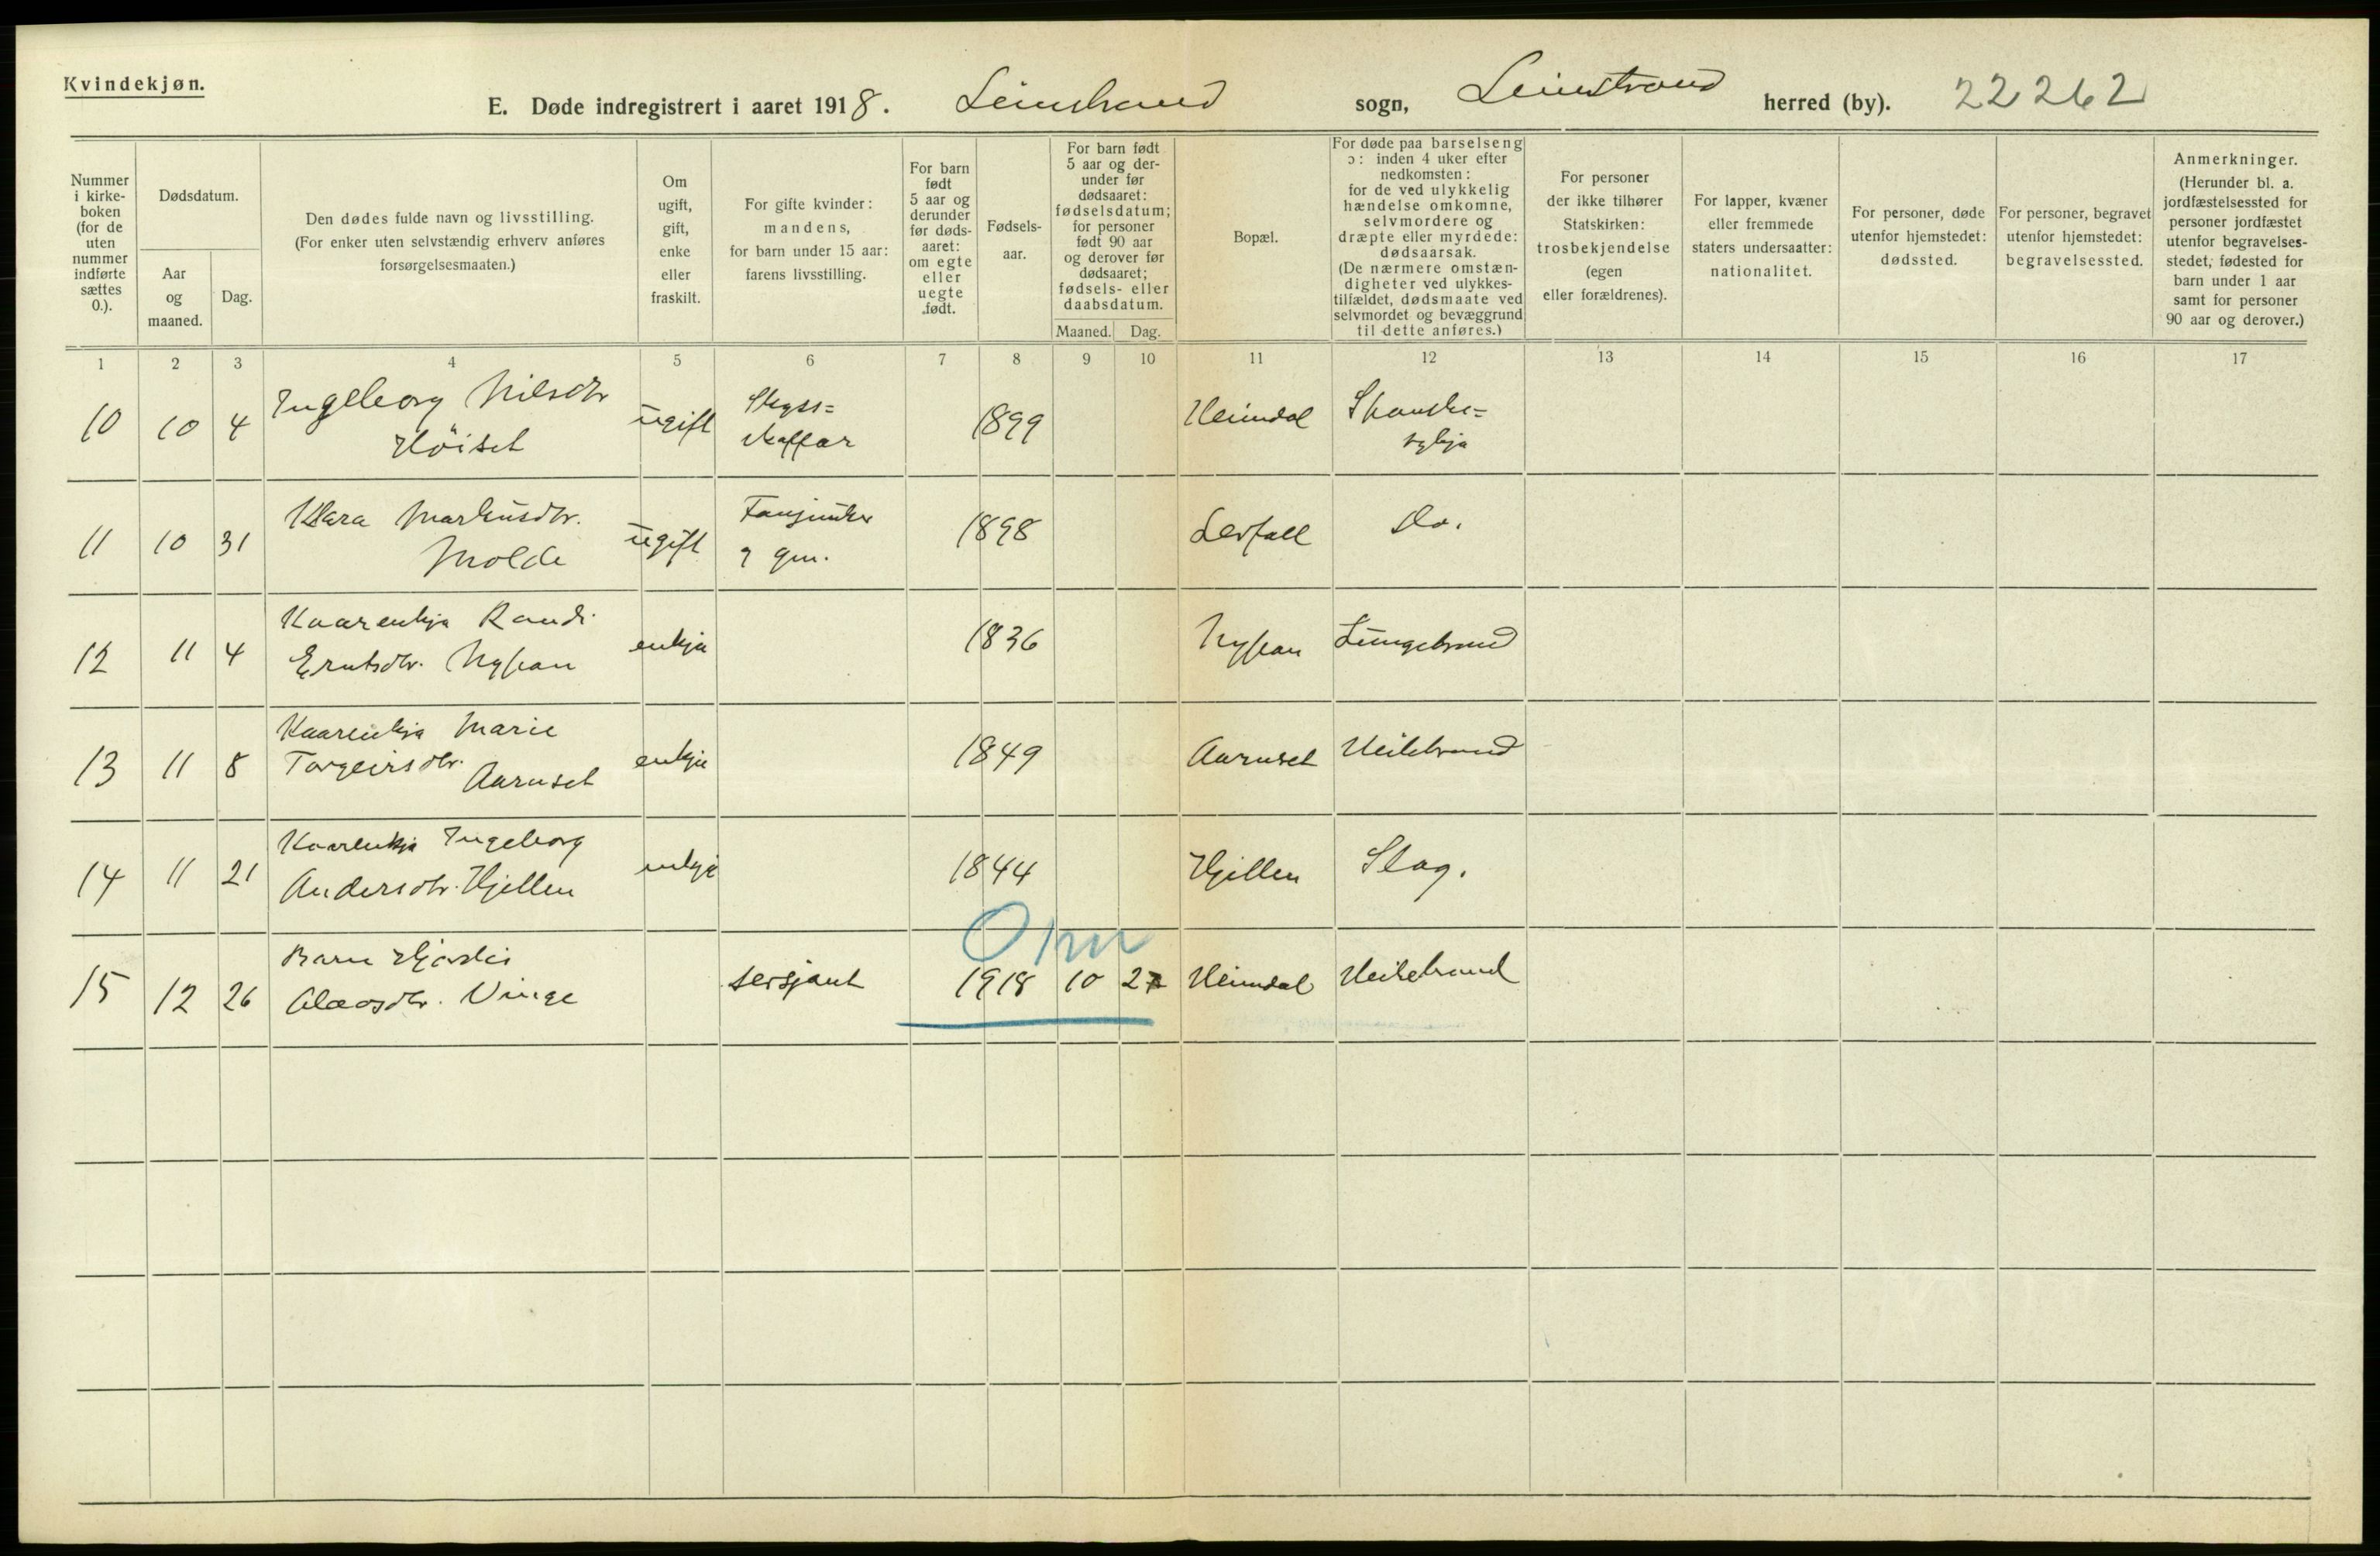 Kvindekjøn.
E. Døde indregistrert i aaret 1918. Leinstrand sogn, Leinstrand herred (by). 22262
Nummer i kirke-boken (for de uten nummer indførte sættes 0.).
Dødsdatum.
Aar og maaned.
Dag.
Den dødes fulde navn og livsstilling.
(For enker uten selvstændig erhverv anføres forsørgelsesmaaten.)
Om ugift, gift, enke eller fraskilt.
For gifte kvinder: mandens, for barn under 15 aar: farens livsstilling.
For barn født 5 aar og derunder før døds-aaret: om egte eller uegte født.
Fødsels-aar.
For barn født 5 aar og der-under før dødsaaret: fødselsdatum; for personer født 90 aar og derover før dødsaaret; fødsels- eller daabsdatum.
Maaned. Dag.
Bopæl.
For døde paa barselseng ɔ: inden 4 uker efter nedkomsten: for de ved ulykkelig hændelse omkomne, selvmordere og dræpte eller myrdede: dødsaarsak.
(De nærmere omstæn-digheter ved ulykkes-tilfældet, dødsmaate ved selvmordet og bevæggrund til dette anføres.)
For personer der ikke tilhører Statskirken: trosbekjendelse (egen eller forældrenes).
For lapper, kvæner eller fremmede staters undersaatter: nationalitet.
For personer, døde utenfor hjemstedet: dødssted.
For personer, begravet utenfor hjemstedet: begravelsessted.
Anmerkninger.
(Herunder bl. a. jordfæstelsessted for personer jordfæstet utenfor begravelses-stedet, fødested for barn under 1 aar samt for personer 90 aar og derover.)
1 2 3 4 5 6 7 8 9 10 11 12 13 14 15 16 17
10 10 4 Ingeborg Nilsdtr Höiset ugift Skyss=skaffar 1899 Heimdal Spanske=sykja
11 10 31 Klara Markusdtr. Molde ugift 1898 Lerfall do.
12 11 4 Kaarenkja Randi Erntsdtr. Nypan enkja 1836 Nypan Lungebrand
13 11 8 Kaarenkja Marie Torgeirsdtr. Aarnset enkja 1849 Aarnset Heilebrand
14 11 21 Kaarenkja Ingeborg Andersdtr. Hjellen enkja 1844 Hjellen Slag.
15 12 26 Barn Hjördis Olaosdtr. Vinge sersjant 1918 10 27 Heimdal Heilebrand